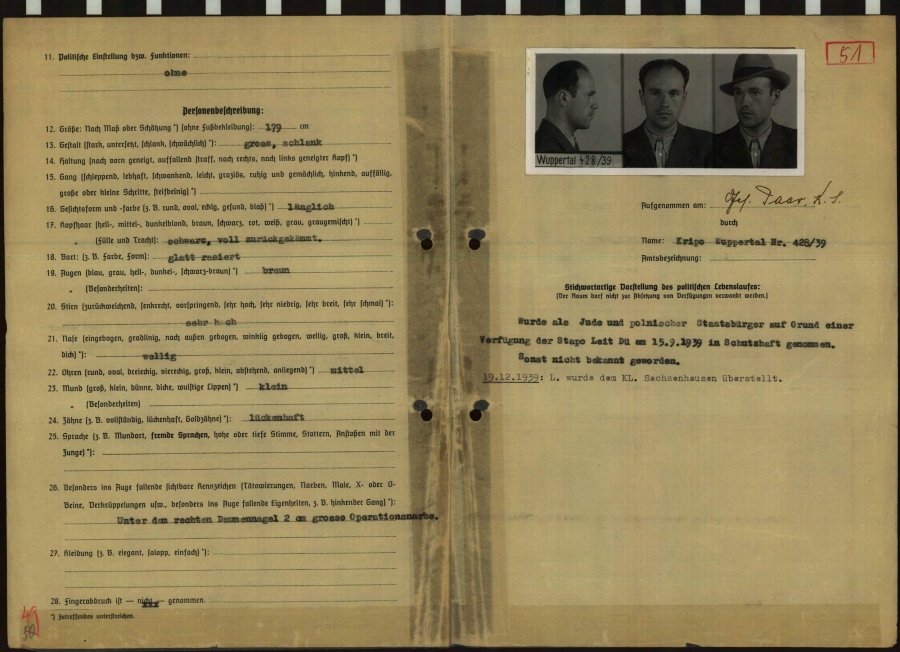 11. Politische Einstellung bzw. Funktionen:
ohne
Personenbeschreibung:
12. Größe: Nach Maß oder Schätzung *) (ohne Fußbekleidung): 179 cm
13. Gestalt (stark, untersetzt, schlank, schwächlich) *): gross, schlank
14. Haltung (nach vorn geneigt, auffallend straff, nach rechts, nach links geneigter Kopf) *)
15. Gang (schleppend, lebhaft, schwankend, leicht, graziös, ruhig und gemächlich, hinkend, auffällig,
große oder kleine Schritte, steifbeinig) *)
16. Gesichtsform und -farbe (z. B. rund, oval, eckig, gesund, blaß) *) länglich
17. Kopfhaar (hell-, mittel-, dunkelblond, braun, schwarz, rot, weiß, grau, graugemischt) *)
" (Fülle und Tracht): schwarz, voll zurückgekämmt.
18. Bart: (z. B. Farbe, Form): glatt rasiert
19. Augen (blau, grau, hell-, dunkel-, schwarz-braun) *) braun
" (Besonderheiten):
20. Stirn (zurückweichend, senkrecht, vorspringend, sehr hoch, sehr niedrig, sehr breit, sehr schmal) *):
sehr hoch
21. Nase (eingebogen, gradlinig, nach außen gebogen, winklig gebogen, wellig, groß, klein, breit,
dick) *): wellig
22. Ohren (rund, oval, dreieckig, viereckig, groß, klein, abstehend, anliegend) *) mittel
23. Mund (groß, klein, dünne, dicke, wulstige Lippen) *) klein
" (Besonderheiten)
24. Zähne (z. B. vollständig, lückenhaft, Goldzähne) *): lückenhaft
25. Sprache (z. B. Mundart, fremde Sprachen, hohe oder tiefe Stimme, Stottern, Anstoßen mit der
Zunge) *):
26. Besonders ins Auge fallende sichtbare Kennzeichen (Tätowierungen, Narben, Male, X- oder O-
Beine, Verkrüppelungen usw., besonders ins Auge fallende Eigenheiten, z. B. hinkender Gang) *):
Unter dem rechten Daumennagel 2 cm grosse Operationsnarbe.
27. Kleidung (z. B. elegant, salopp, einfach) *):
28. Fingerabdruck ist — nicht — genommen.
*) Zutreffendes unterstreichen.
49
50
51
Wuppertal 428/39
Aufgenommen am: Paar, K. S.
durch
Name: Kripo Wuppertal Nr. 428/39
Amtsbezeichnung:
Stichwortartige Darstellung des politischen Lebenslaufes:
(Der Raum darf nicht zur Absetzung von Verfügungen verwandt werden.)
Wurde als Jude und polnischer Staatsbürger auf Grund einer
Verfügung der Stapo Leit Dü am 15.9.1939 in Schutzhaft genommen.
Sonst nicht bekannt geworden.
19.12.1939: L. wurde dem KL. Sachsenhausen überstellt.